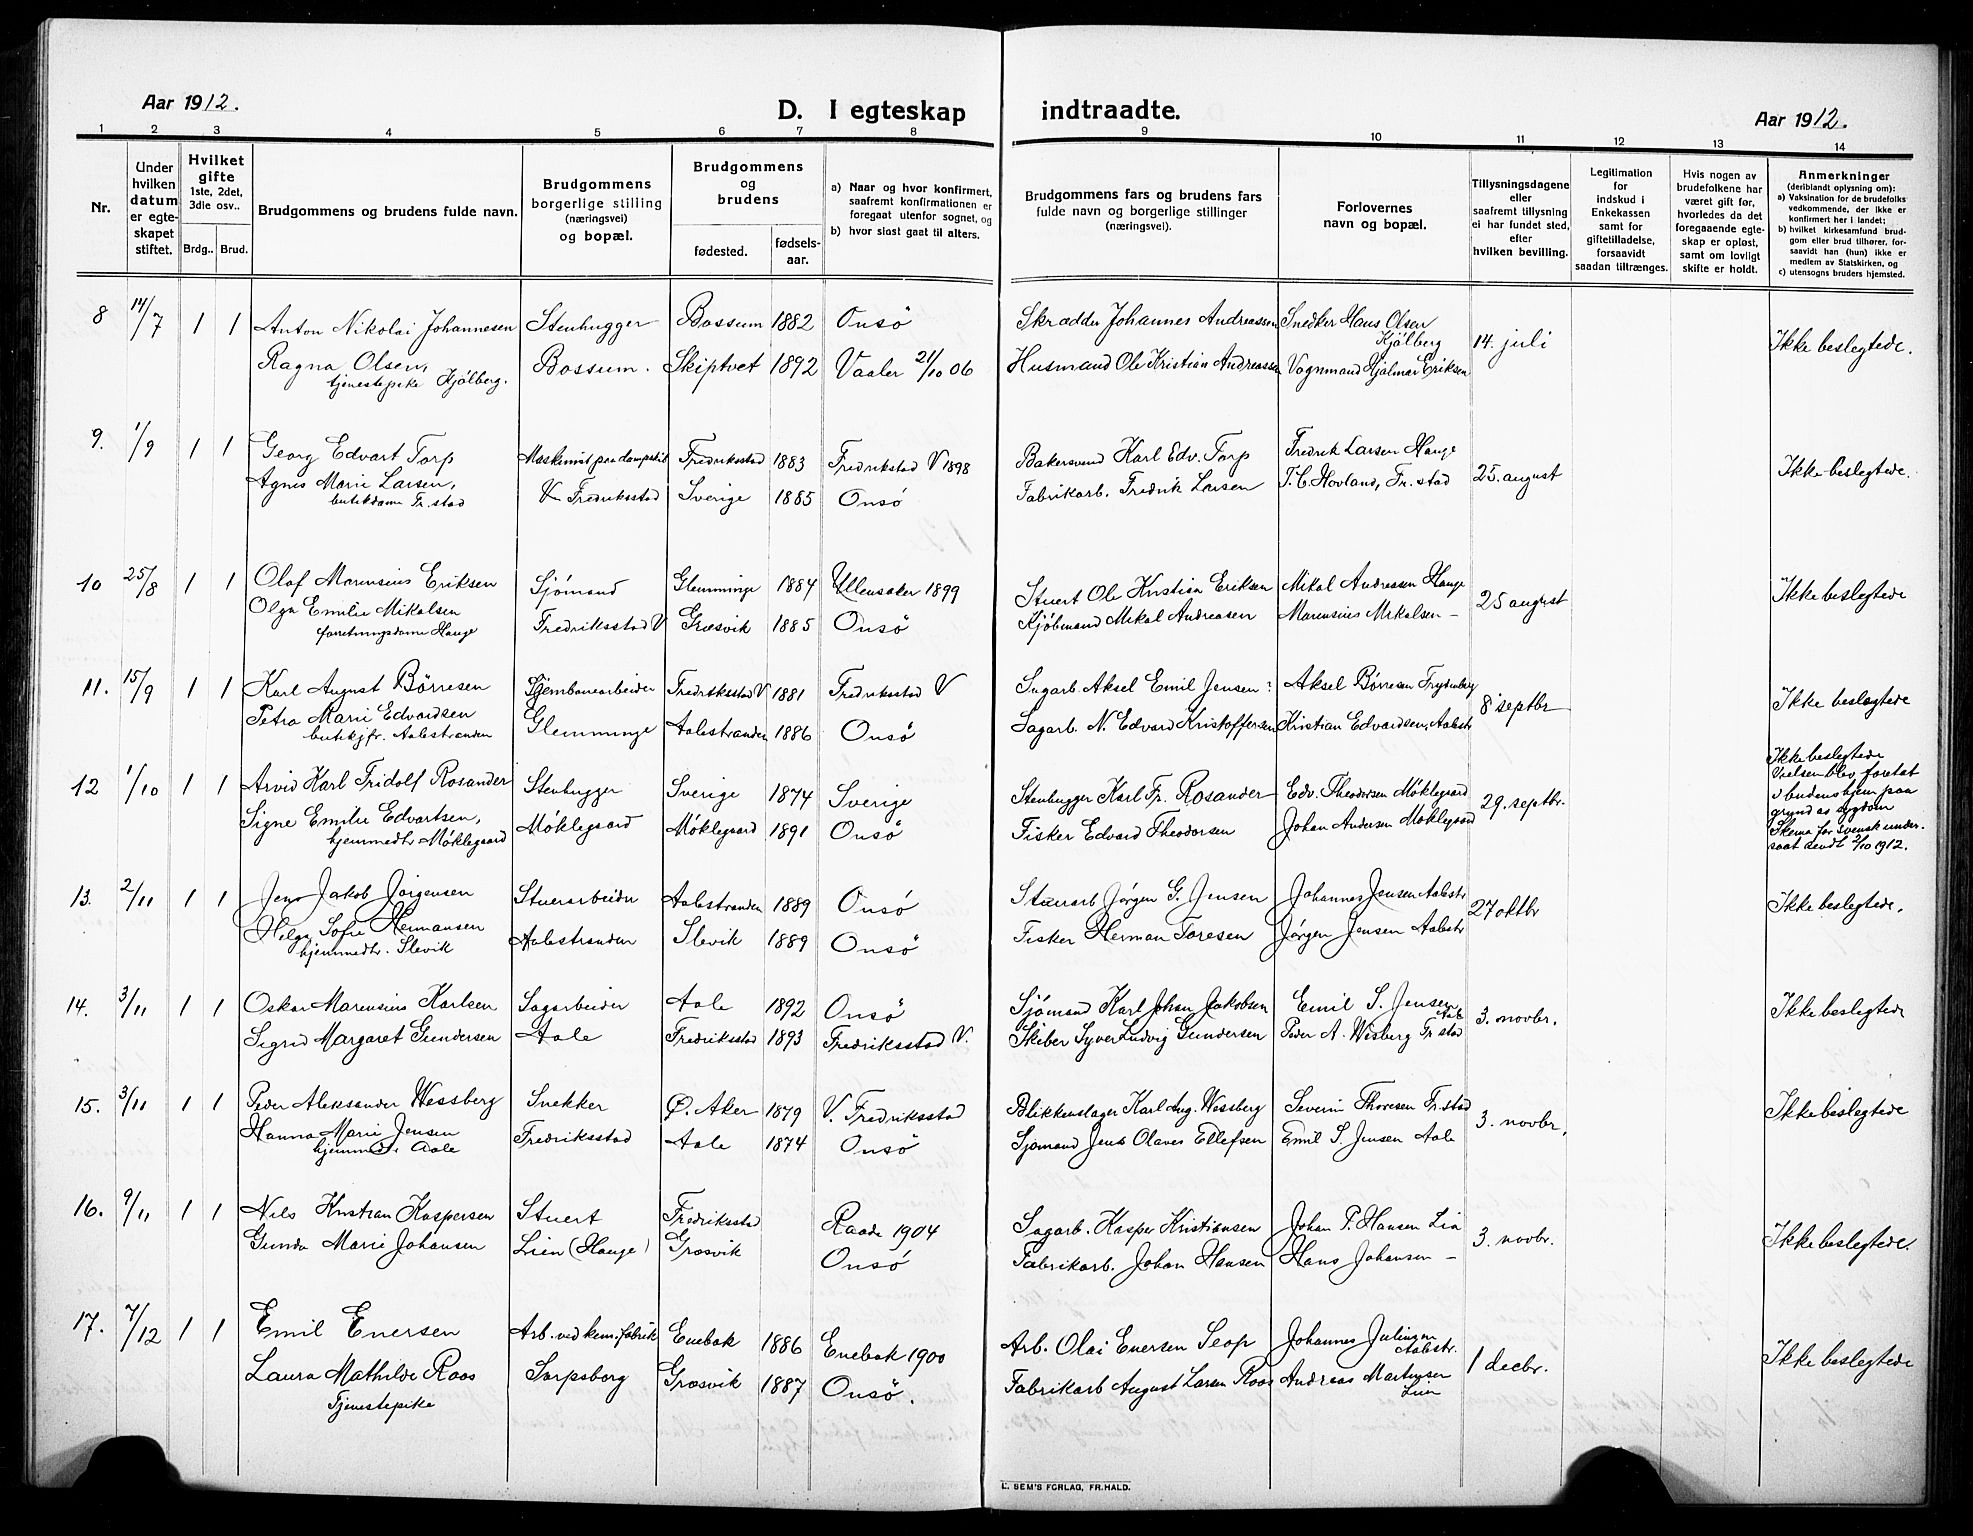 Aar 1912.
D. I egteskap indtraadte.
Aar 1912.
1 2 3 4 5 6 7 8 9 10 11 12 13 14
Nr.
Under hvilken datum er egteskapet stiftet.
Hvilket gifte 1ste, 2det, 3die osv..
Brdg.. Brud.
Brudgommens og brudens fulde navn.
Brudgommens borgerlige stilling (næringsvei) og bopæl.
Brudgommens og brudens
fødested.
fødselsaar.
a) Naar og hvor konfirmert, saafremt konfirmationen er foregaat utenfor sognet, og
b) hvor sidst gaat til alters.
Brudgommens fars og brudens fars fulde navn og borgerlige stillinger (næringsvei).
Forlovernes navn og bopæl.
Tillysningsdagene eller saafremt tillysning ei har fundet sted, efter hvilken bevilling.
Legitimation for indskud i Enkekassen samt for giftetilladelse, forsaavidt saadan tiltrænges.
Hvis nogen av brudefolkene har været gift før, hvorledes da det foregaaende egteskap er opløst, samt om lovligt skifte er holdt.
Anmerkninger (deriblandt oplysning om):
a) Vaksination for de brudefolks vedkommende, der ikke er konfirmert her i landet;
b) hvilket kirkesamfund brudgom eller brud tilhører, forsaavidt han (hun) ikke er medlem av Statskirken, og
c) utensogns bruders hjemsted.
8 14/7 1 1 Anton Nikolai Johannesen Stenhugger Bossum 1882 Onsö Skrædder Johannes Andreassen Snedker Hans Olsen Kjölberg 14. juli Ikke beslegtede.
Ragna Olsen, Bossum. Skiptvet 1892 Vaaler 21/10 06 Husmand Ole Kristian Andreassen Vognmand Hjalmar Eriksen
tjenestepike Kjölberg.
9. 1/9 1 1 Georg Edvart Torp Maskinist paa dampskib Fredriksstad 1883 Fredrikstad V 1898 Bakersvend Karl Edv. Torp Fredrik Larsen Hauge 25. august Ikke beslegtede.
Agnes Marie Larsen, V Fredriksstad Sverige 1885 Onsö Fabrikarb. Fredrik Larsen T. C. Hovland, Fr. stad
butikdame Fr. stad
10 25/8 1 1 Olaf Marensius Eriksen Sjömand Glemminge 1884 Ullensaker 1899 Stuert Ole Kristian Eriksen Mikal Andreasen Hauge 25 august Ikke beslegtede
Olga Emilie Mikalsen Fredriksstad V Græsvik 1885 Onsö Kjöbmand Mikal Andreasen Marensius Mikalsen —
forretningsdame Hauge
11. 15/9 1 1 Karl August Börresen Jernbanearbeider Fredriksstad V 1881 Fredriksstad V Sagarb. Aksel Emil Jensen ? Aksel Børresen Frydenberg 8 septbr Ikke beslægtede
Petra Marie Edvardsen Glemminge Aalestranden 1886 Onsö Sagarb. N. Edvard Kristoffersen Kristian Edvardsen, Aalestr
butikjfr. Aalestranden
12 1/10 1 1 Arvid Karl Fridolf Rosander Stenhugger Sverige 1874 Sverige Stenhugger Karl Fr. Rosander Edv. Theodorsen Möklegaard 29. septbr. Ikke beslegtede
Vielsen blev foretat
i brudens hjem paa
grund av sygdom
Skema for svensk undersaat sendt 2/10 1912.
Signe Emilie Edvartsen, Möklegaard Möklegaard 1891 Onsö Fisker Edvard Theodorsen Johan Andersen Möklegaard
hjemmedtr Möklegaard
13. 2/11 1 1 Jens Jakob Jörgensen Stuerarbeider Aalestranden 1889 Onsö Stuerarb Jørgen G. Jensen Johannes Jensen Aalestr 27 oktbr Ikke beslegtede.
Helga Sofie Hermansen Aalestranden Slevik 1889 Onsö Fisker Herman Toresen Jørgen Jensen Aalestr
hjemmedtr. Slevik
14. 3/11 1 1 Oskar Marensius Karlsen Sagarbeider Aale 1892 Onsö Sjömand Karl Johan Jakobsen Emil S. Jensen Aale 3. novbr. Ikke beslegtede
Sigrid Margaret Gundersen Aale Fredriksstad 1893 Fredriksstad V. Skiber Syver Ludvig Gundersen Peder A. Wesberg Fr stad
15. 3/11 1 1 Peder Aleksander Wessberg Snekker Ø. Aker 1879 V. Fredriksstad Blikkenslager Karl Aug. Wessberg Severin Thoresen Fr. stad 3. novbr. Ikke beslegtede
Hanna Marie Jensen Fredriksstad Aale 1874 Onsö Sjömand Jens Olaves Ellefsen Emil S. Jensen Aale
hjemmedtr Aale
16. 9/11 1 1 Nils Kristian Kaspersen Stuert Fredriksstad Raade 1904 Sagarb. Kasper Kristiansen Johan P. Hansen Lia 3. novbr. Ikke beslegtede.
Gunda Marie Johansen Lien (Hauge) Græsvik Onsö Fabrikarb. Johan Hansen Hans Johansen —
17. 7/12 1 1 Emil Enersen Arb. ved kem. fabrik Enebak 1886 Enebak 1900 Arb. Olai Enersen Johannes Aalestr. 1 decbr. Ikke beslegtede
Laura Mathilde Roos Sarpsborg Græsvik 1887 Onsö. Fabrikarb August Larsen Roos Andreas Martinsen Lien
Tjenestepike
E. SEM'S FORLAG, FR.HALD.